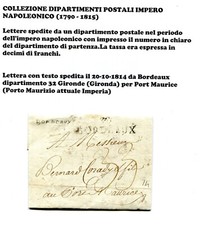 COLLEZIONE DIPARTIMENTI POSTALI IMPERO
NAPOLEONICO (1790 - 1815)
Lettere spedite da un dipartimento postale nel periodo
dell'impero napoleonico con impresso il numero in chiaro
del dipartimento di partenza.La tassa era espressa in
decimi di franchi.
Lettera con testo spedita il 20-10-1814 da Bordeaux
dipartimento 32 Gironde (Gironda) per Port Maurice
(Porto Maurizio attuale Imperia)
A Messieurs
Bernard
au Port Maurice